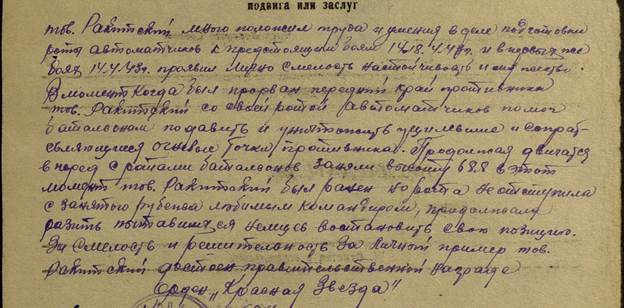 подвига или заслуг
тов. Ракитский много положил труда и умения в деле подготовки
рота автоматчиков к предстоящим боям 14.18.4.43г. и в первых же
боях 14.4.43г. проявил лично смелость настойчивость и
В момент когда был прорван передний край противника
тов. Ракитский со своей ротой автоматчиков помог
батальонам подавить и уничтожить уцелевшие и сопрот-
овляющиеся огневые точки противника. Продолжая двигатся
вперед с ротами батальонов заняли высоту 68.8 в этот
момент тов. Ракитский был ранен но рота не отступила
с занятого рубежа любимым командиром, продолжала
разить пытавшихся немцев востановить свою позицию.
За смелость и решительность за личный пример тов.
Ракитский достоен правительственной награде
Орден „Красная Звезда"